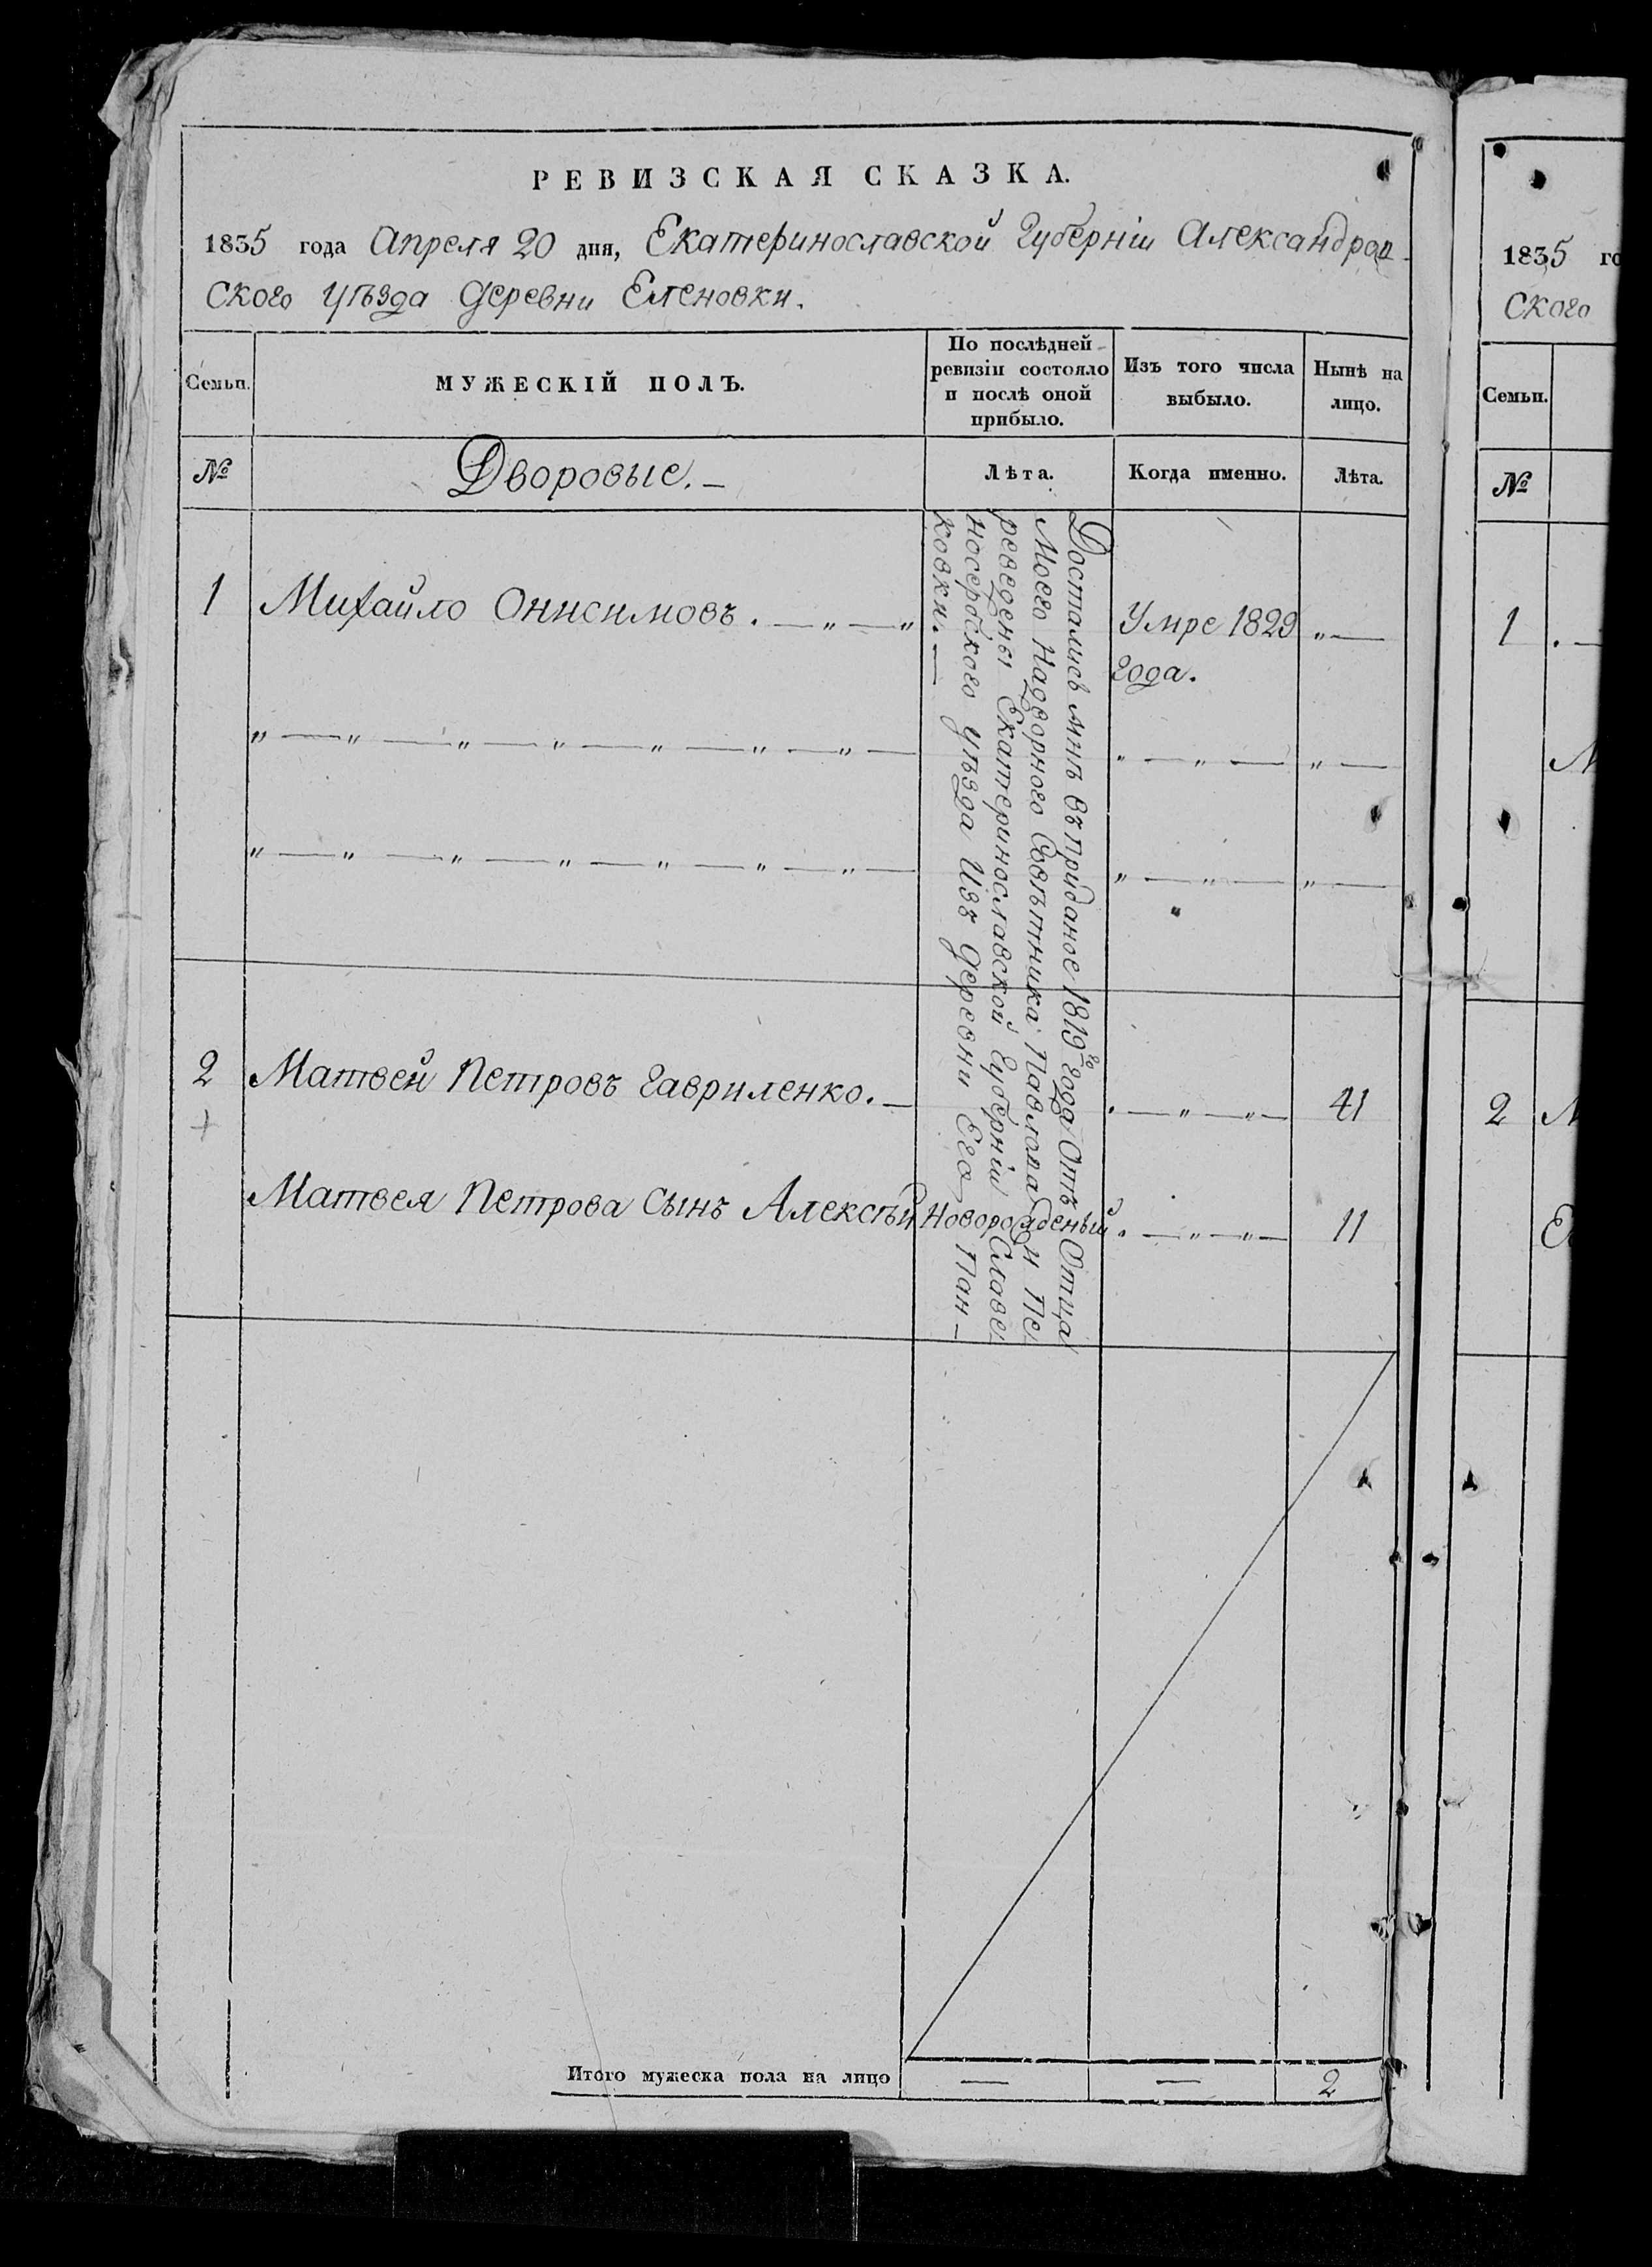 РЕВИЗСКАЯ СКАЗКА.
1835 года Апреля 20 дня, Екатеринославской Губерніи Александров-
ского уѣзда деревни Еленовки.
Семьи.
МУЖЕСКІЙ ПОЛЪ.
По послѣдней
ревизіи состояло
и послѣ оной
прибыло.
Изъ того числа
выбыло.
Нынѣ на
лицо.
№
Дворовые.
Лѣта.
Когда именно.
Лѣта.
Достались мнѣ въ приданое 1819го года Отъ Отца
Моего Надворного Совѣтника Павлова и Пе
реведены Екатеринославской Губерніи Славе
носербского уѣзда Изъ деревни Его Пан-
ковки.
1 Михайло Онисимовъ. Умре 1829
года.
2 Матвей Петровъ Гавриленко. 41
Матвея Петрова Сынъ Алексѣй Новорожденый. 11
Итого мужеска пола на лицо — — 2
1835 го
ского
Семьи.
№
1
2